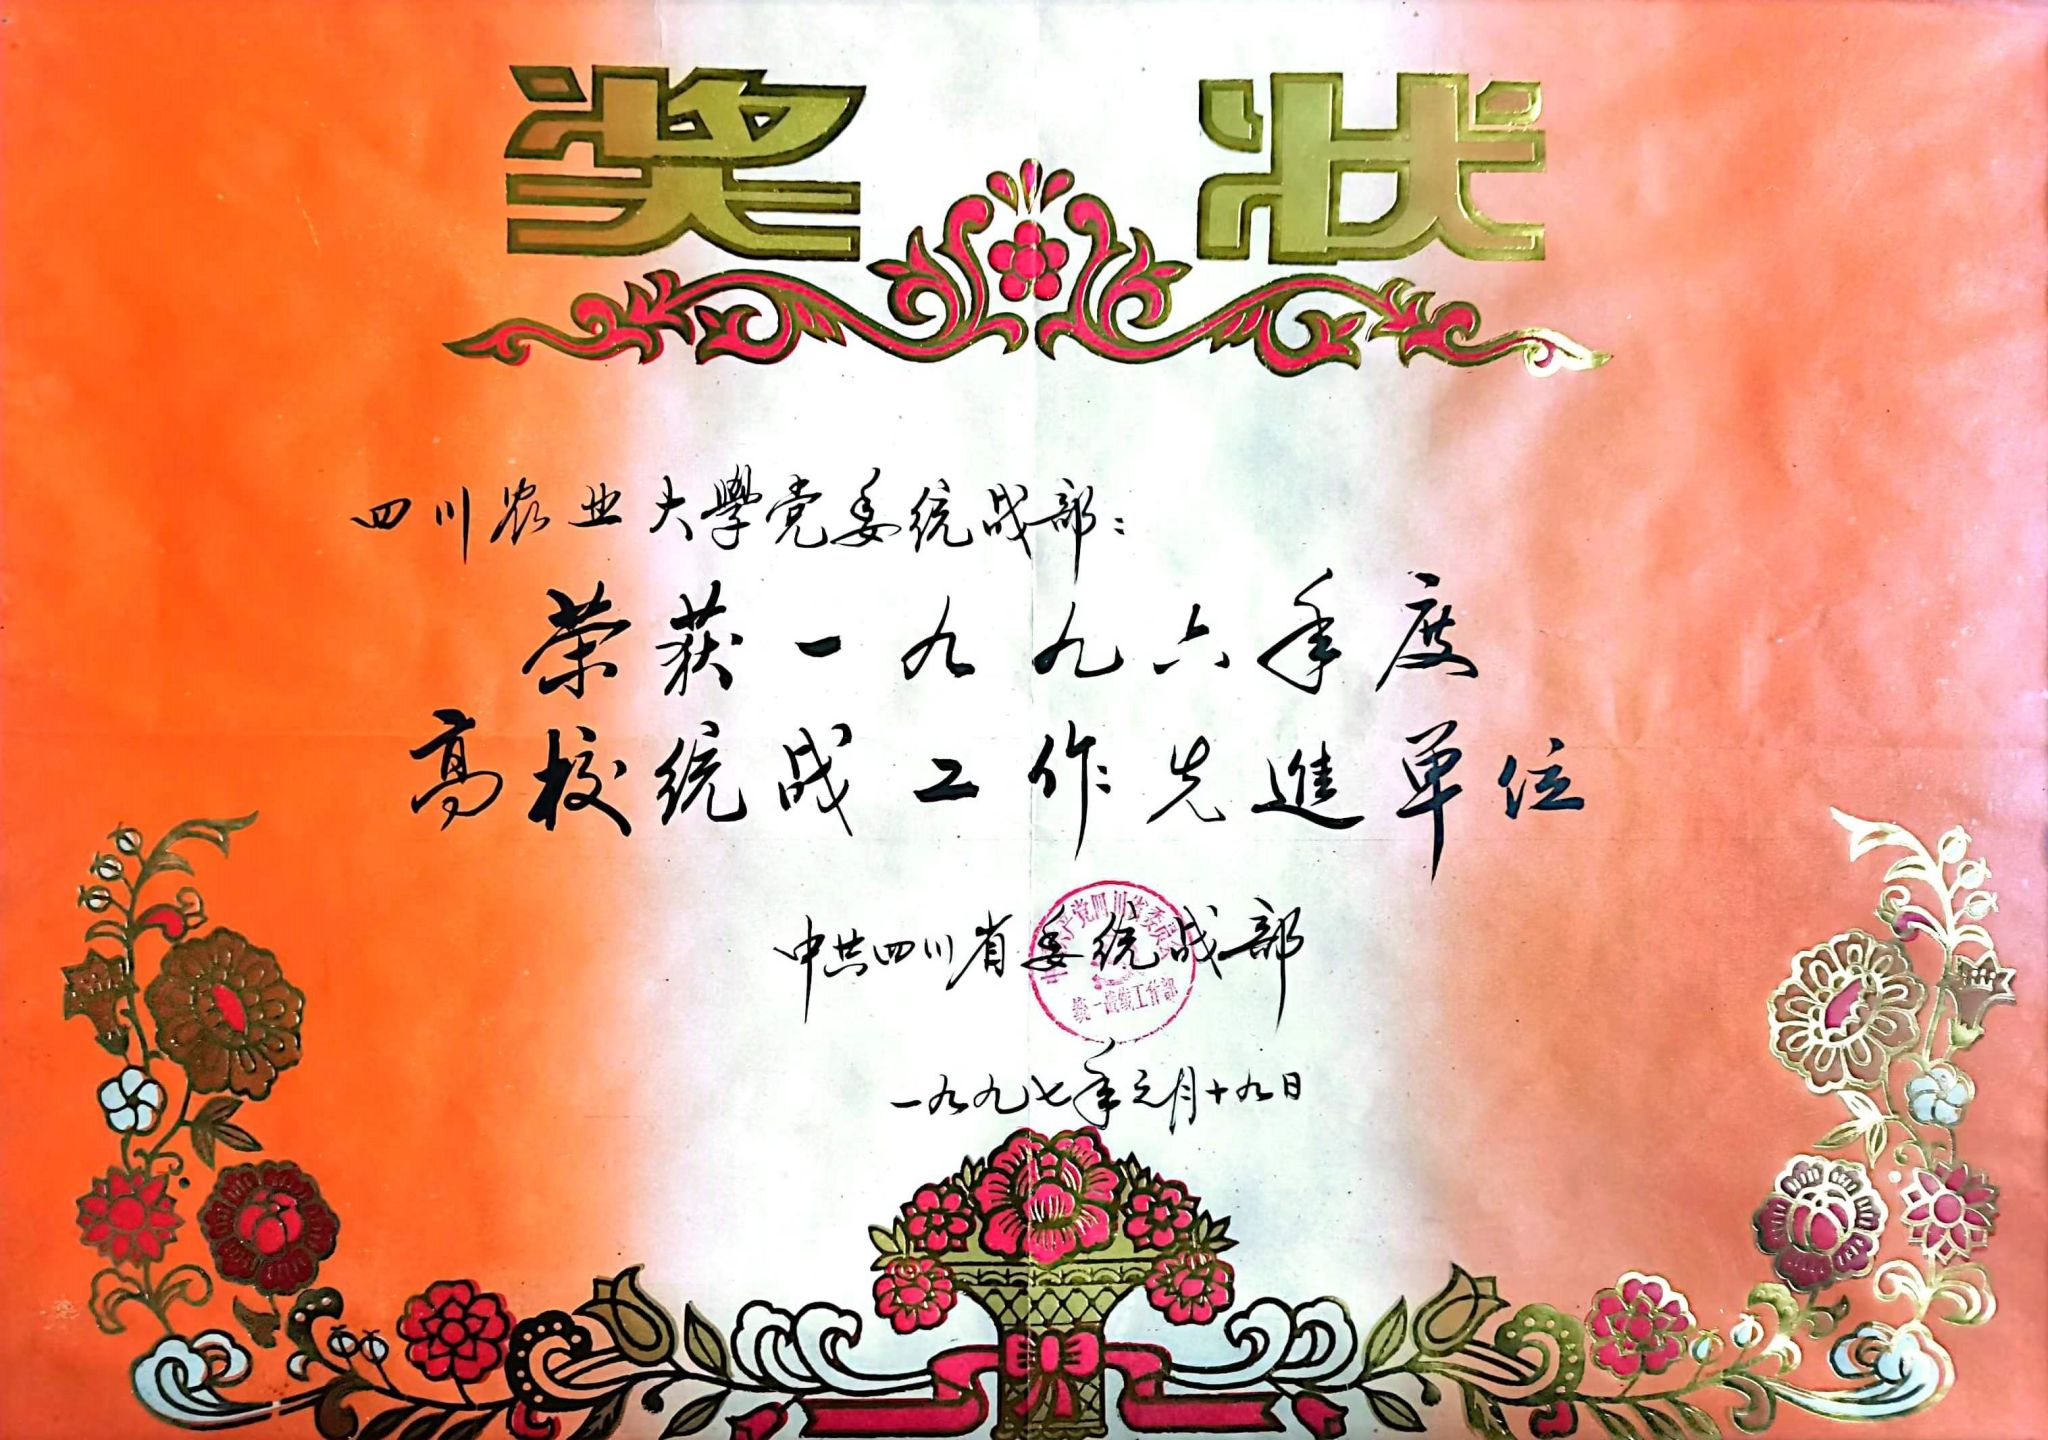 奖状
四川农业大學党委统战部：
荣获一九九六年度
高校统战工作先進单位
中共四川省委统战部
中国共产党四川省委员会
统一战线工作部
一九九七年元月十九日